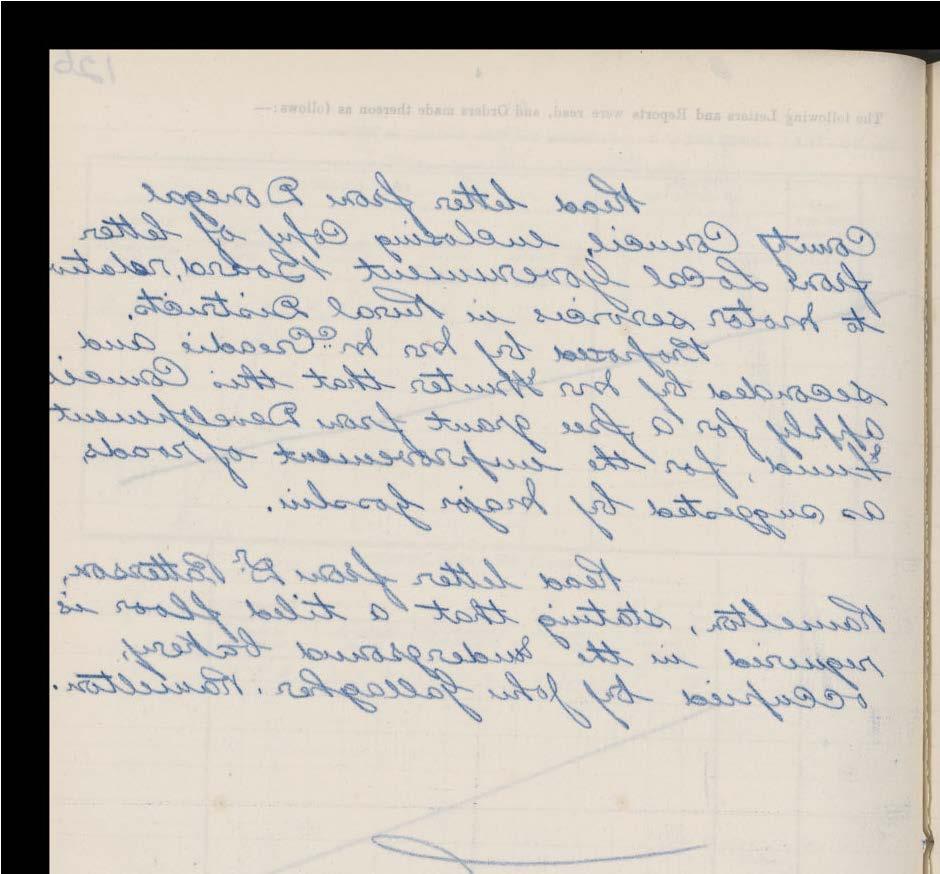 126
4
The following Letters and Reports were read, and Orders made thereon as follows:—
Read letter from Donegal
County Council, enclosing Copy of letter
from Local Government Board, relative
to motor services in Rural Districts.
Proposed by Mr McCreadie and
seconded by Mr Hunter that this Council
apply for a free grant from Development
Fund, for the improvement of roads
as suggested by Major
Read letter from Dr. Patterson,
Ramelton, stating that a tiled floor is
required in the underground bakery,
occupied by John Gallagher. Ramelton.